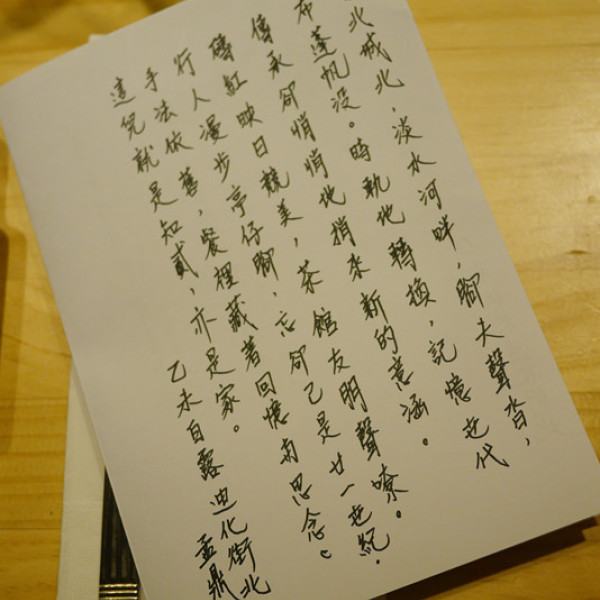 北城北,淡水河畔,腳夫聲沓,
布蓬帆没。時軌地轉換,記憶世代
傳承卻悄悄地捎來新的意涵。
磚紅映日競美,茶館友朋聲嘹。
行人漫步亭仔腳,忘卻已是廿一世紀.
手法依舊,餐裡藏著回憶與思念。
這兒就是知貳,亦是家。
乙未白露迪化街北
孟鼎